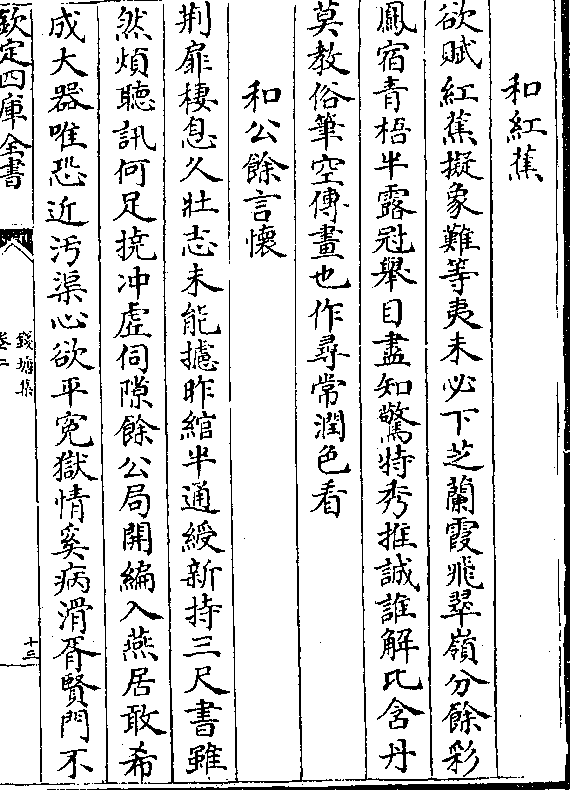 和紅蕉
欲賦紅蕉擬象難等夷未必下芝蘭霞飛翠嶺分餘彩
鳳宿青梧半露冠舉目盡知驚特秀推誠誰解比含丹
莫教俗筆空傳畫也作尋常潤色看
和公餘言懷
荆扉棲息久壯志未能攄昨綰半通綬新持三尺書雖
然煩聽訊何足撓冲虛伺隙餘公局開編入燕居敢希
成大器唯恐近汚渠心欲平寃獄情奚病滑胥賢門不
欽定四庫全書
錢塘集
卷二
十三